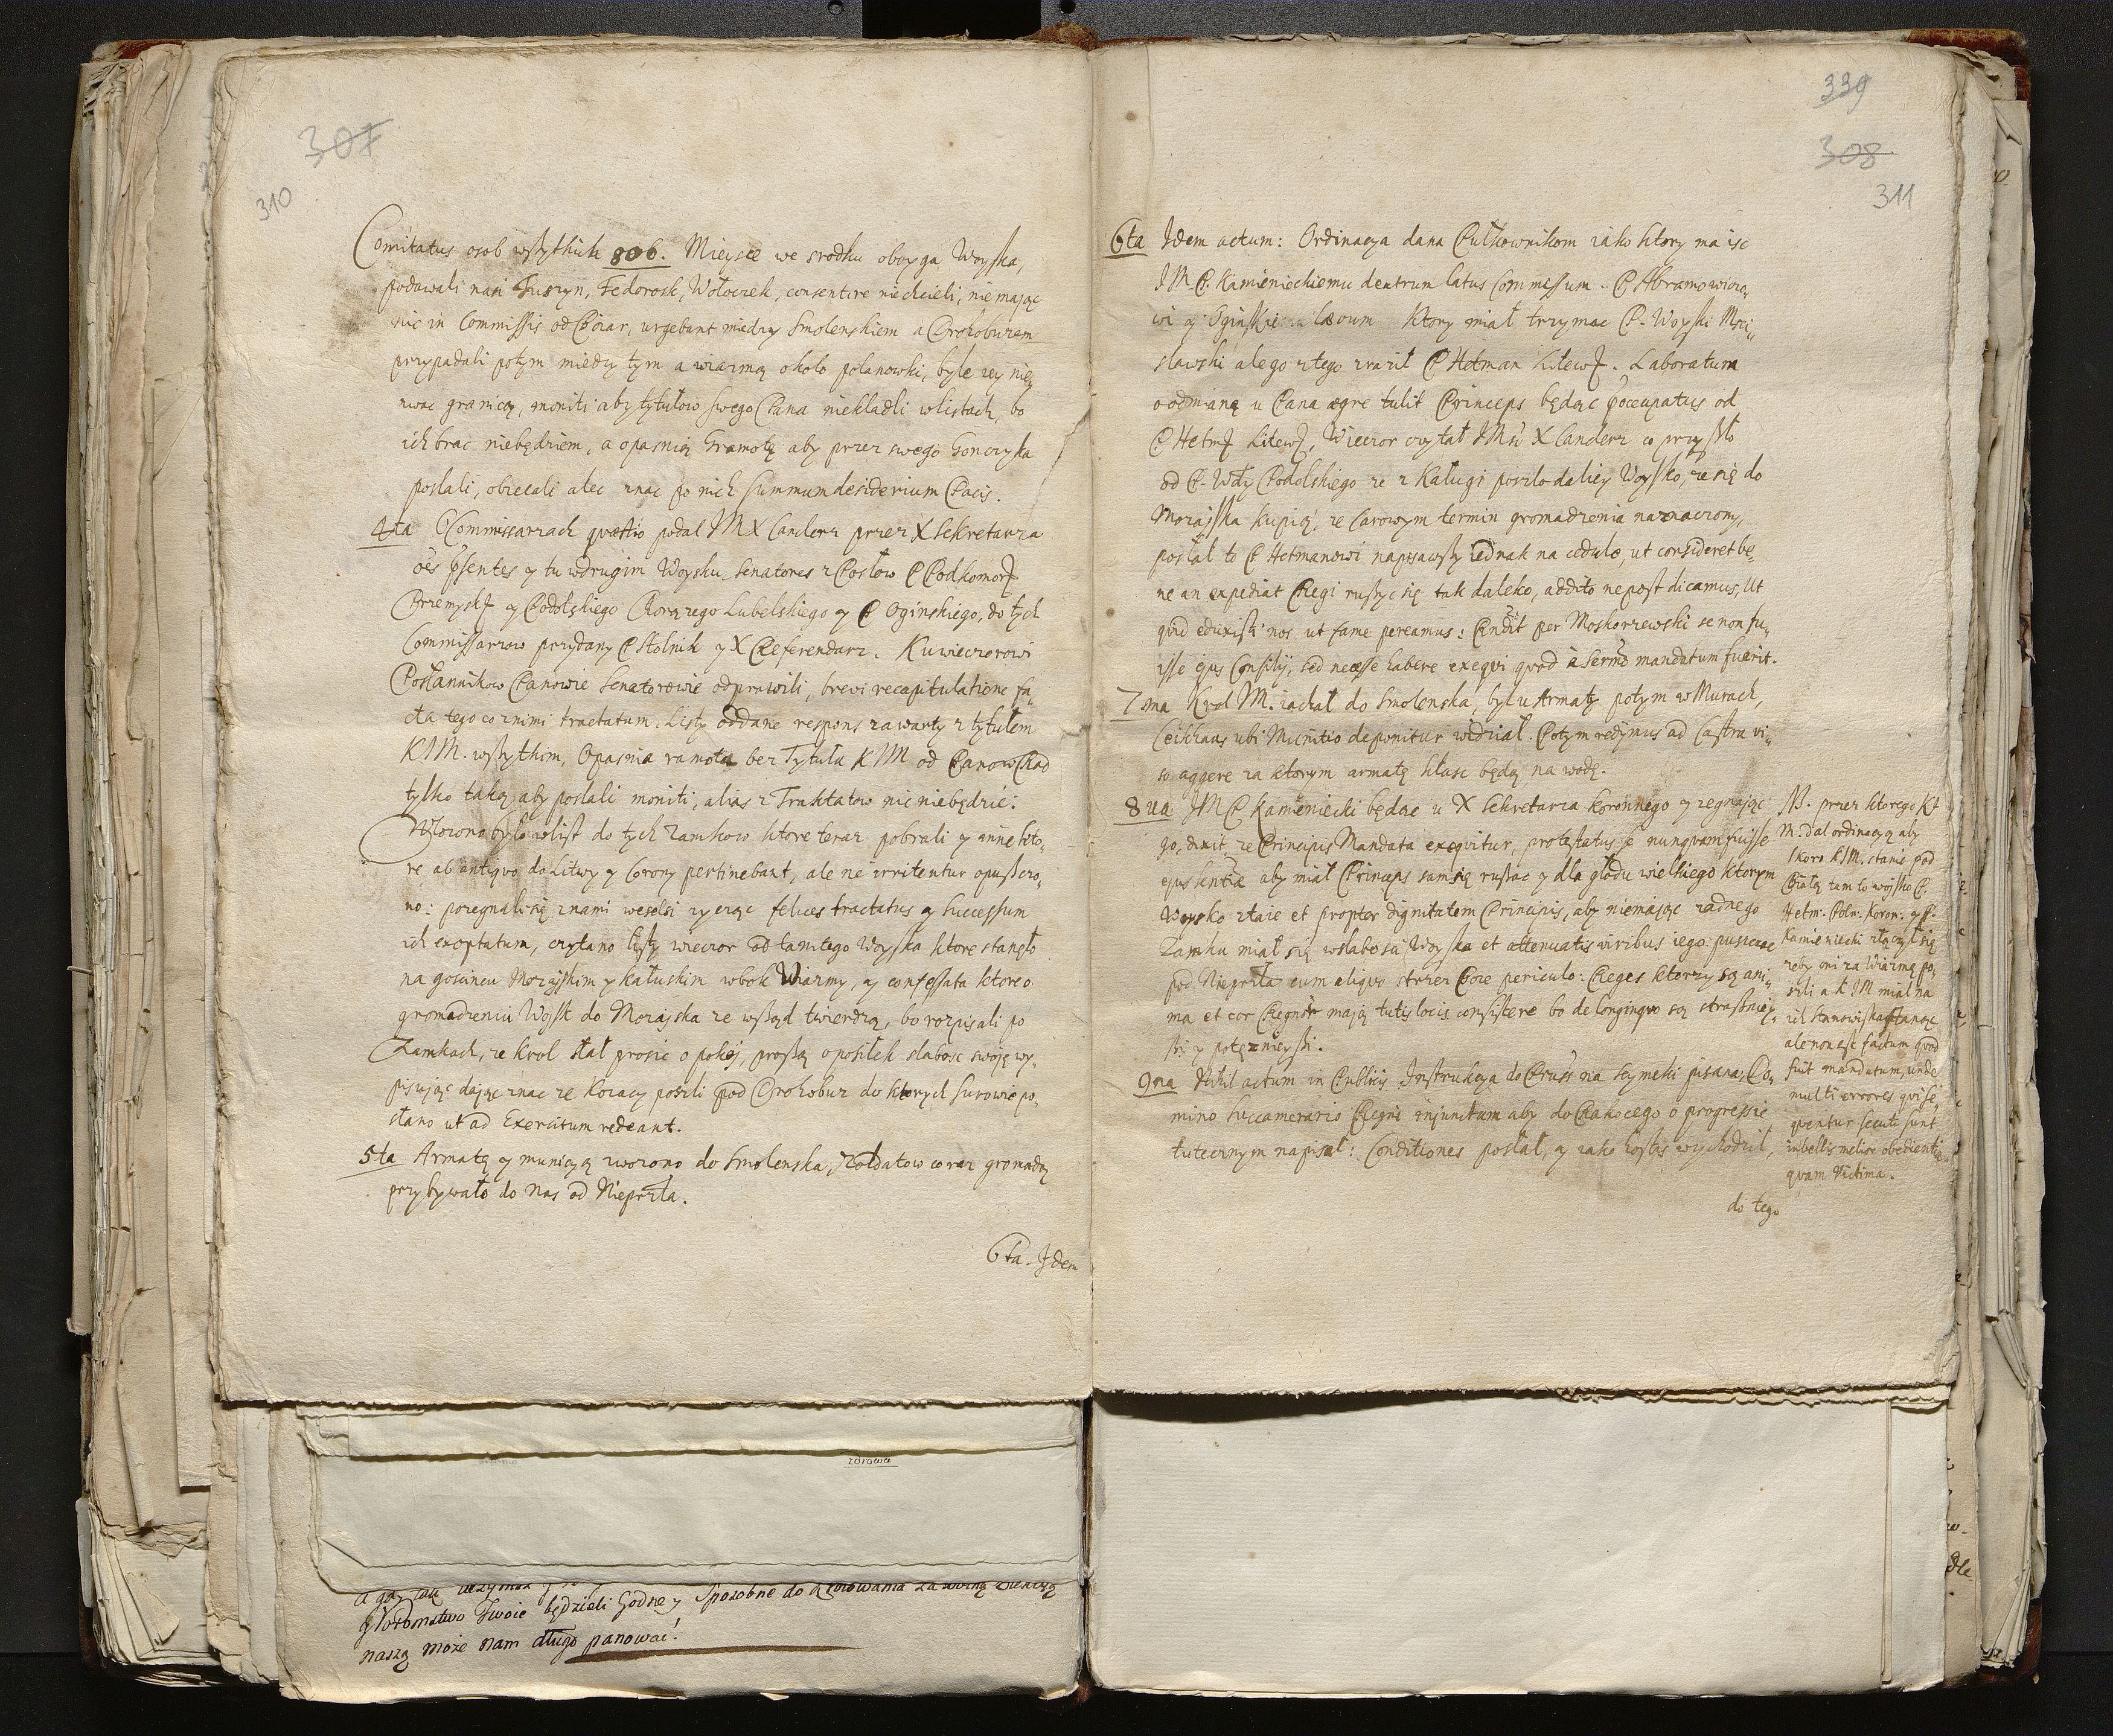 307
310
Comitatus osob wszytkich 806. Mieysce we srodku oboyga Woyska,
podawali nasi Tuszyn, Fedorosk, Wołoczek, consentire niechcieli, niemaiąc
nic in Commissis od Boiar, urgebant miedzy Smolenskiem a Drohobużem
przypadali potym miedzy tym a wiazmą około polanowki, byle zey nie
nwac granicę, moniti aby tytułow swego Pana niekładli wlistach, bo
ich brac niebędziem, a opasnią Gramotę aby przez swego Gonczyka
posłali, obiecali alec znac po nich summum desiderium Pacis.
4ta O Commissarzach quæstio podal JM X Canclerz przez X Sekretarza
oēs p̄sentes y tu wdrugim Woysku Senatores z Posłow P Podkomorz
Przemysk y Podolskiego Chorązego Lubelskiego y P Oginskiego, do tych
Commissarzow przydany P Stolnik y X Referendarz. Kuwieczorowi
Posłannikow Panowie Senatorowie odprawili, brevi recapitulatione fa„
cta tego co znimi tractatum. Listy oddane respons zawarty z tytułem
KJM. wszytkim, Opasnia ramota bez Tytułu KJM od Panow Rad
tylko taką aby posłali moniti, alias z Traktatow nic niebędzie.
Włozono było wlist do tych Zamkow ktore teraz pobrali y inne kto„
re ab antiquo do Litwy y Corony pertinebant, ale ne irritentur opuszczo„
no: pozegnali się znami weseli zycząc felices tractatus y successum
ich exoptatum, czytano listy wieczor od tamtego Woyska ktore stanęło
na goscincu Mozayskim y kałuskim wbok Wiazmy, y confessata ktore o
gromadzeniu Woysk do Mozayska ze wsząd twierdzą, bo rozpisali po
Zamkach, ze Krol słał prosic o pokoj, proszą o posiłek słabosc swoję wy„
pisując dając znac ze Kozacy poszli pod Drohobuz do ktorych surowie po„
słano ut ad Exercitum redeant.
5ta Armatę y municyą zwozono do Smolenska, Zołdatow coraz gromadą
przybywało do nas od Nieprzla.
6ta. Jdem
a gdy
Potomstwo Twoie będzieli Godne y Sposobne do
naszą może nam długo panować!
zdrowa
339
308
311
6ta Jdem actum: Ordinacya dana Pułkownikom iako ktory ma isc
JM P. Kamienieckiemu dextrum latus Commissum. P Abramowiczo„
wi y Oginskie lævum ktory miał trzymac P. Woyski Msci„
sławski ale go ztego zraził P Hetman Litews. Laboratum
o odmianę u Pana ægre tulit Princeps będąc p̄occupatus od
P Hetm Litews, Wieczor czytał JMc X Canclerz co przyszło
od P. Wdy Podolskiego ze z Kaługi poszło daliey Woysko, ze się do
Mozayska kupią, ze Carowym termin gromadzenia naznaczony,
posłał to P Hetmanowi napisawszy iednak na cedule, ut consideret be„
ne an expediat Regi ruszyc się tak daleko, addito ne post dicamus, Ut
quid eduxisti nos ut fame pereamus: Rndit per Moskorzewski se non fu„
isse ejus Consilij, sed necesse habere exequi quod à Sermo mandatum fuerit.
7ma Krol JM. iachał do Smolenska, był u Armaty potym w Murach,
Ceikhaus ubi Munitio deponitur widział. Potym redijmus ad Castra vi„
so aggere za ktorym armatę kłasc będą na wodę.
8ua JM P Kamieniecki będąc u X Sekretarza koronnego y zegnając
go, dixit, ze Principis Mandata exequitur, protestatus se nunquam fuisse
ejus sentiæ aby miał Princeps sam się ruszac y dla głodu wielkiego ktorym
Woysko ztaie et propter dignitatem Principis, aby niemając zadnego
Zamku miał się wsłabosci Woyska et attenuatis viribus iego puszczac
pod Nieprzla cum aliquo strzez Boze periculo: Reges ktorzy są ani„
ma et cor Regnor mają tutis locis consistere bo de longinquo są straszniey„
szi y potęznieyszi.
9na Nihil actum in Publicis Jnstrukcya do Pruss na seymeki pisana, Do„
mino Succamerario Regni injunctum aby do Rakocego o progressie
tutecznym napisał: Conditiones posłał, y iako hostis wychodził,
do tego
NB. przez ktorego KJ
M. dał ordinacyą aby
skoro KJM. stanie pod
Białą tam to woysko P.
Hetm. Poln. Koron. y P.
Kamieniecki złączył się
zeby oni za Wiazmę po„
szli a KJM miał na
ich stanowiska stanąc
ale non est factum quod
fuit mandatum, unde
multi errores qui se„
quentur secuti sunt
in bellis melior obedientia
quam Victima.